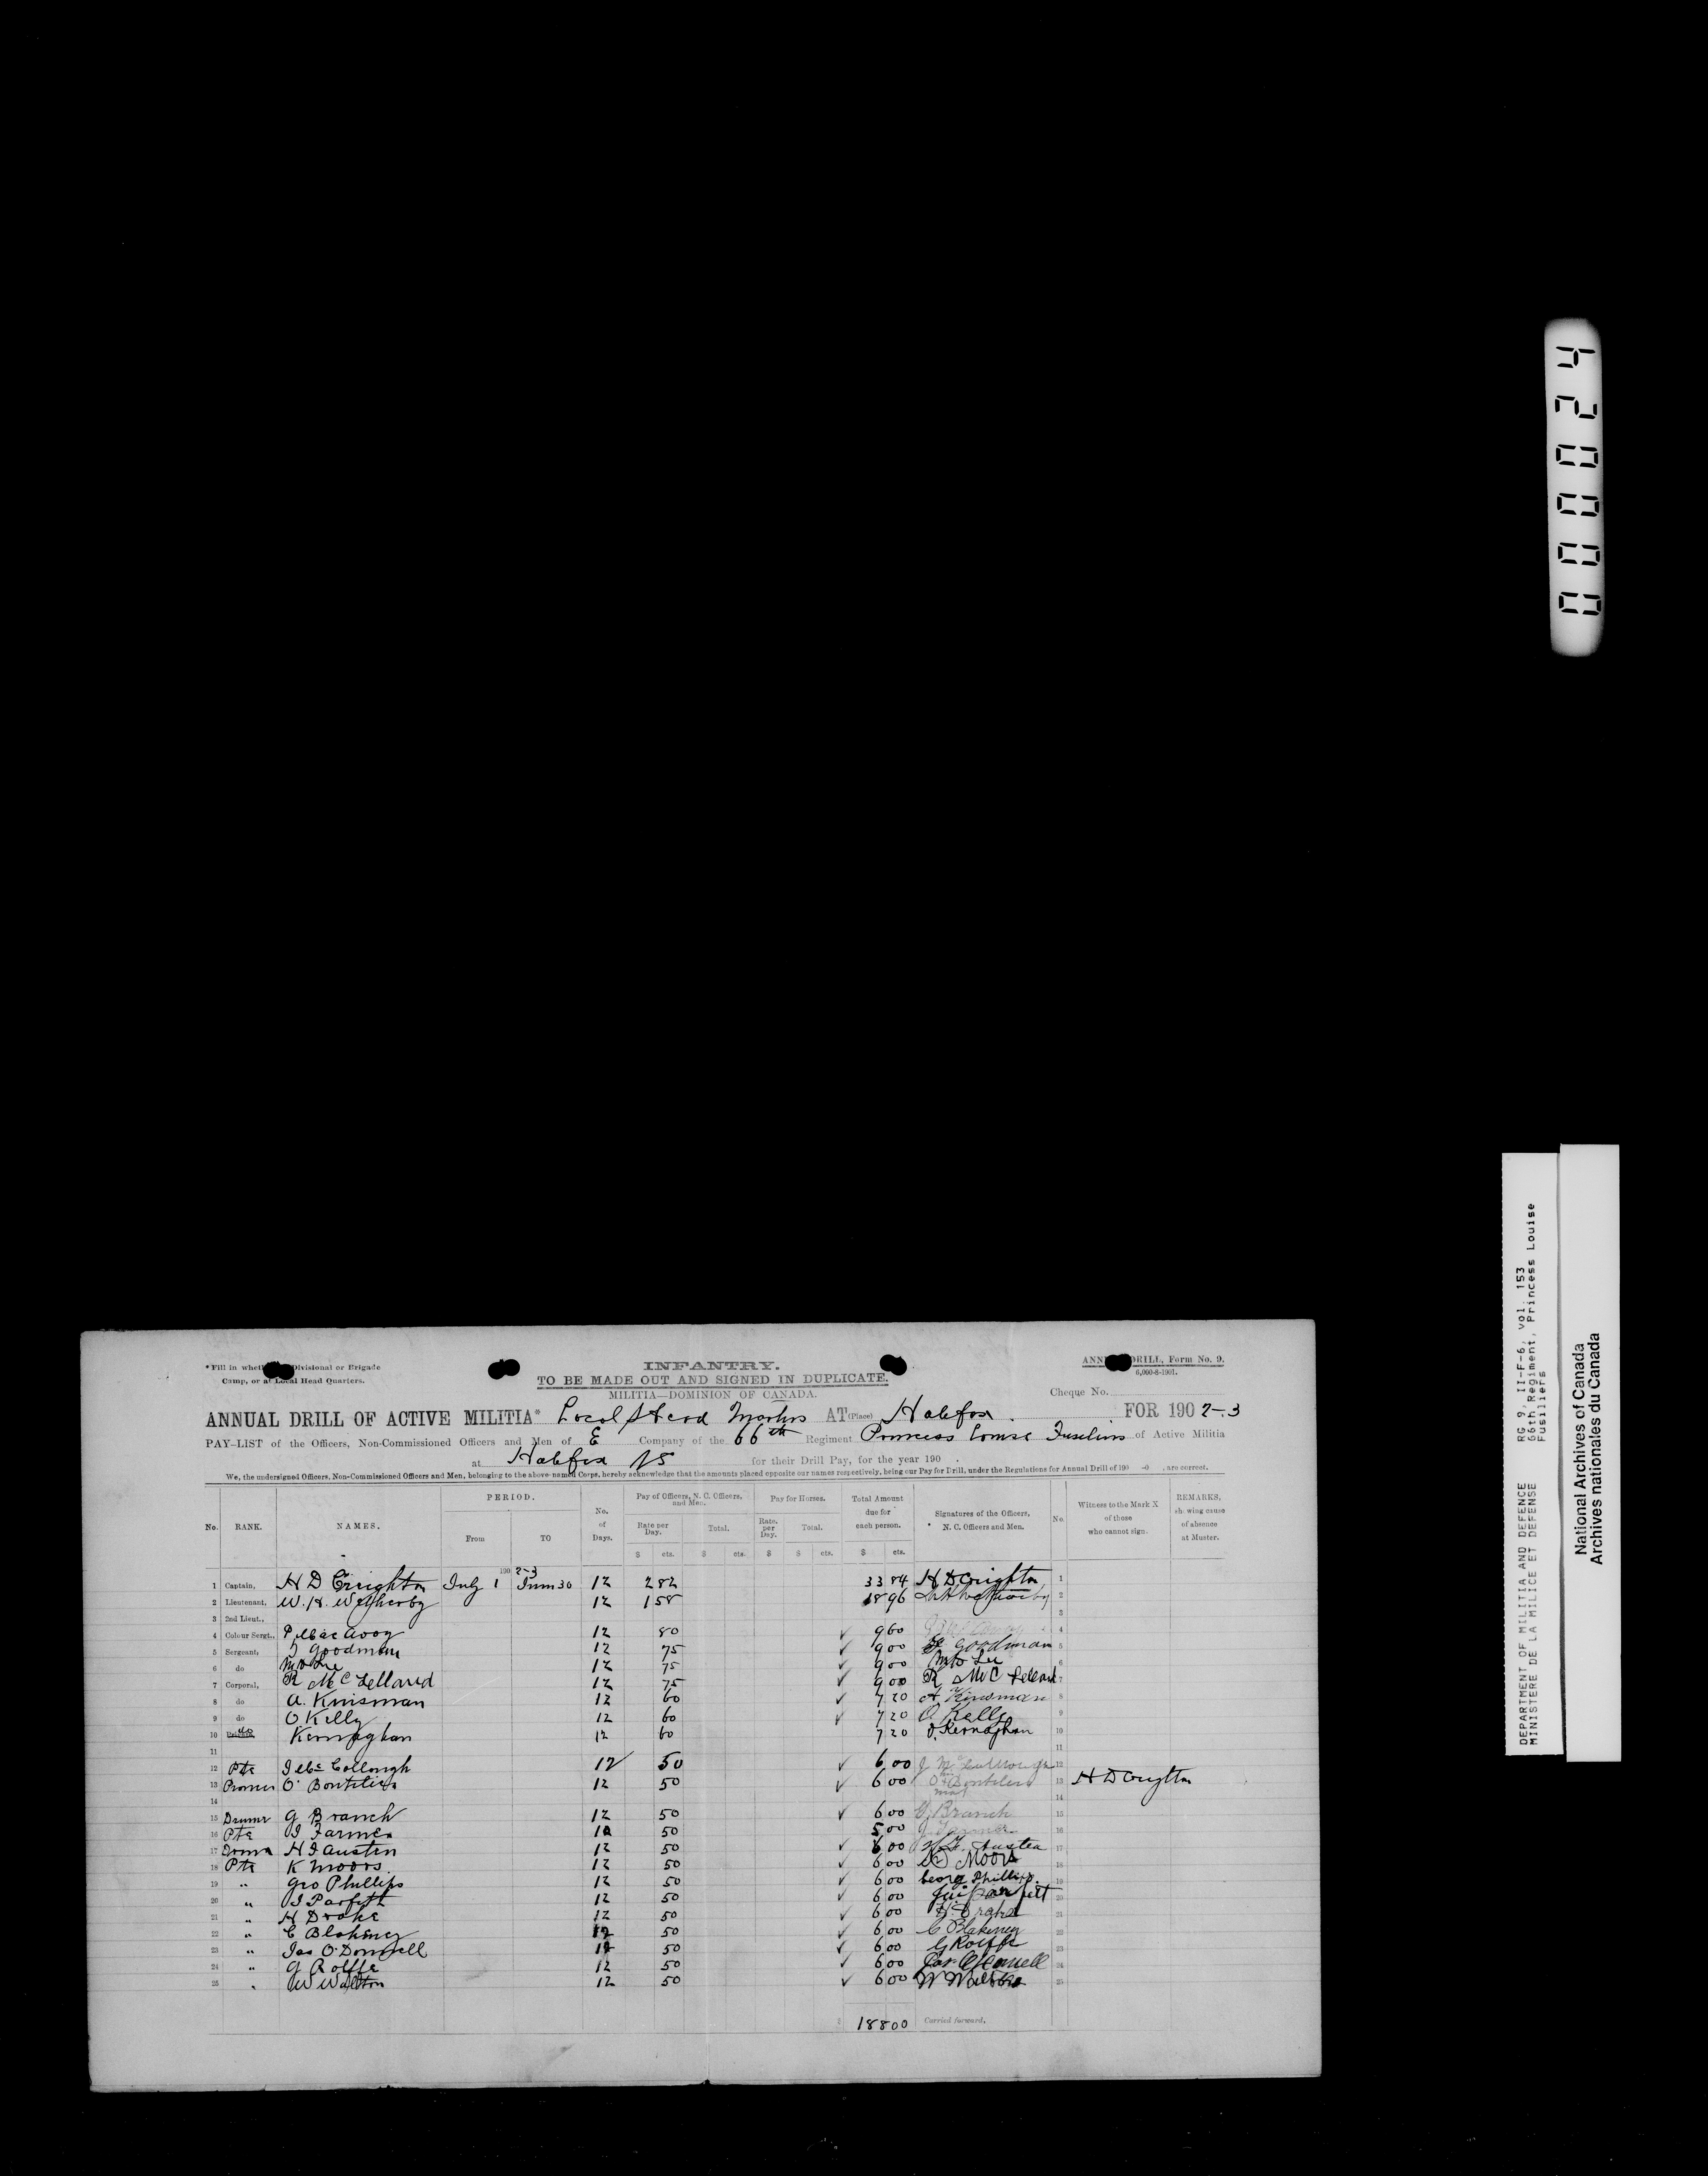 * Fill in whet Divisional or Brigade
Camp, or at Local Head Quarters.
INFANTRY.
TO BE MADE OUT AND SIGNED IN DUPLICATE.
MILITIA—DOMINION OF CANADA.
DRILL, Form No. 9.
6,000-8-1901.
Cheque No.
ANNUAL DRILL OF ACTIVE MILITIA* Local Head AT (Place) Halifax. FOR 190 2-3
PAY-LIST of the Officers, Non-Commissioned Officers and Men of E Company of the 66th Regiment Princess Louise Fusiliers of Active Militia
at Halifax NS for their Drill Pay, for the year 190 .
We, the undersigned Officers, Non-Commissioned Officers and Men, belonging to the above-named Corps, hereby acknowledge that the amounts placed opposite our names respectively, being our Pay for Drill, under the Regulations for Annual Drill of 190 -0 , are correct.
No. RANK. NAMES. PERIOD. From TO No. of Days. Pay of Officers, N. C. Officers, and Men. Rate per Day. Total. Pay for Horses. Rate. per Day. Total. Total Amount due for each person. Signatures of the Officers, N. C. Officers and Men. No. Witness to the Mark X of those who cannot sign. REMARKS, showing cause of absence at Muster.
$ cts. $ cts. $ $ cts. $ cts.
190 2-3
1 Captain, H D Creighton July 1 June 30 12 2 82 33 84 H D Creighton 1
2 Lieutenant, W. H. Wetherby 12 1 58 18 96 W H Wetherby 2
3 2nd Lieut., 3
4 Colour Sergt., P MacAvoy 12 80 ✓ 9 60 4
5 Sergeant, J Goodman 12 75 ✓ 9 00 Goodman 5
6 do M D Lee 12 75 ✓ 9 00 M D Lee 6
7 Corporal, R McLelland 12 75 ✓ 9 00 R McLelland 7
8 do A. Kinsman 12 60 ✓ 7 20 A Kinsman 8
9 do O Kelly 12 60 ✓ 7 20 O Kelly 9
10 do Kernaghan 12 60 7 20 O. Kernaghan 10
11 11
12 Pte J McCollough 12 50 ✓ 6 00 J McCullough 12
13 O. Boutilier 12 50 ✓ 6 00 O Boutilier 13 H D Creighton
14 14
15 Drumr G Branch 12 50 ✓ 6 00 G Branch 15
16 Pte J Farmer 10 50 5 00 J. Farmer 16
17 H J Austen 12 50 ✓ 6 00 H J. Austen 17
18 Pte K Moors. 12 50 ✓ 6 00 Moors 18
19 " Geo Phillips 12 50 ✓ 6 00 George Phillips. 19
20 " J Parfitt 12 50 ✓ 6 00 Parfitt 20
21 " H Drake 12 50 ✓ 6 00 H. Drake 21
22 " C Blakeney 12 50 ✓ 6 00 C Blakeney 22
23 " Jas O'Donnell 12 50 ✓ 6 00 G Rolffe 23
24 " G Rolffe 12 50 ✓ 6 00 Jas O'Donnell 24
25 " W Walton 12 50 ✓ 6 00 W Walton 25
$ 188 00 Carried forward.
00004 2 4
DEPARTMENT OF MILITIA AND DEFENCE RG 9, II-F-6, vol. 153
MINISTERE DE LA MILICE ET DEFENSE 66th Regiment, Princess Louise
Fusiliers
National Archives of Canada
Archives nationales du Canada